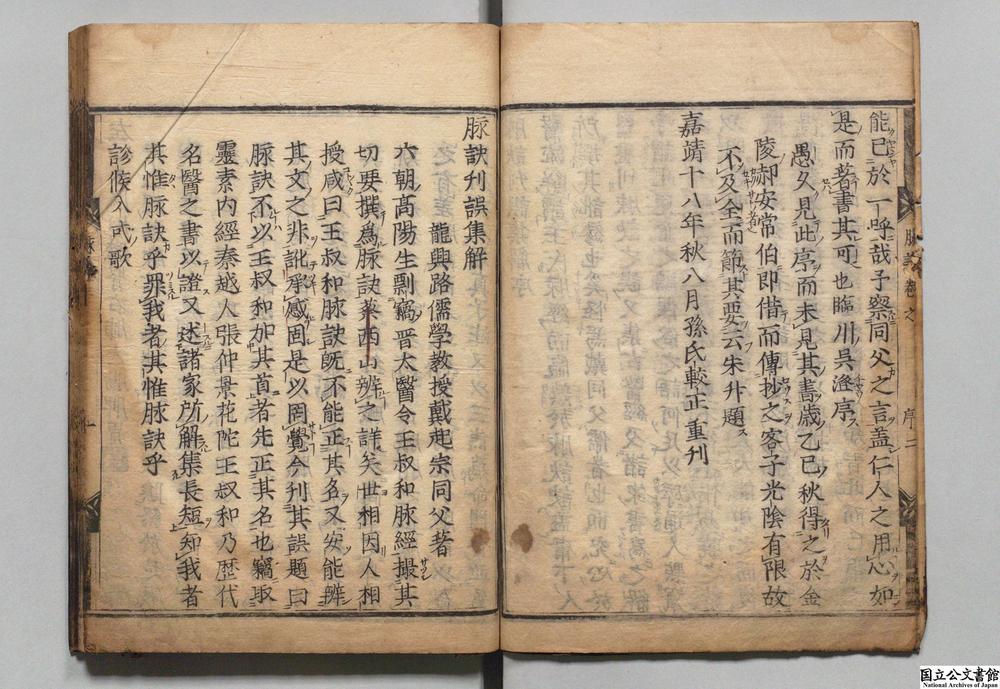 能已於一呼哉子察同父之言盖仁人之用心如
是而著書其可也臨川吳澄序
愚久見此序而未見其書歳乙巳秋得之於金
陵郝安常伯即借而傳抄之客子光陰有限故
不及全而節其要云朱升題
嘉靖十八年秋八月孫氏較正重刋
脉訣卷之
序二
脉訣刋誤集解
龍興路儒學教授戴起宗同父著
六朝高陽生剽竊晋太醫令王叔和脉經撮其
切要撰爲脉訣蔡西山辨之詳矣世相因人相
授咸曰王叔和脉訣既不能正其名又安能辨
其文之非訛承惑固是以罔覺今刋其誤題曰
脉訣不以王叔和加其首者先正其名也竊取
靈素内經秦越人張仲景花陀王叔和乃歴代
名醫之書以證又述諸家所解集長短知我者
其惟脉訣乎罪我者其惟脉訣乎
診候入式歌
国立公文書館
National Archives of Japan